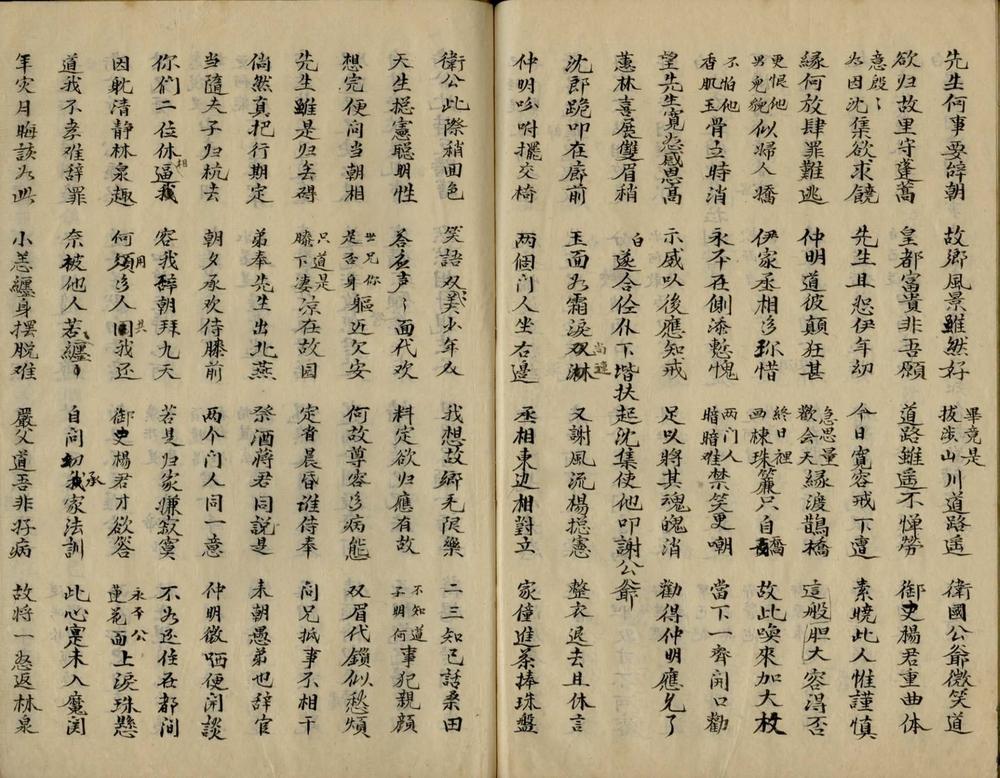 先生何事要辭朝　故鄉風景雖然好　畢竟是拔涉山川道路遥　衛國公爺微笑道
欲归故里守蓬蒿　皇都富貴非吾願　道路雖遥不惮勞　御史楊君重曲体
意殷〻为因沈集欲求饒　先生且恕伊年幼　今日寬容戒下遭　素曉此人惟謹慎
緣何放肆罪難逃　仲明道彼顛狂甚　急思量歡会天緣渡鵲橋　這般胆大容得否
更恨他男兒貌似婦人嬌　伊家丞相多珎惜　終日裡画棟珠簾只自　故此喚來加大杖
不怕他香肌玉骨立時消　永平在側添慙愧　两门人暗暗难禁笑更嘲　當下一齊開口勸
望先生寬恕感恩高　示威以後應知戒　足以將其魂魄消　勸得仲明應允了
蕙林喜展雙眉稍　白　遂令佺仆下堦扶起沈集使他叩謝公爺
沈郎跪叩在廊前　玉面为霜淚双　又謝風流楊摠憲　整衣退去且休言
仲明吩咐擺交椅　两個门人坐右邊　丞相東边相對立　家僮進茶捧珠盤
衛公此際稍回色　笑語双美少年　我想故鄉无限樂　二三知己話桑田
天生摠憲聰明性　答应声〻面代欢　料定欲归應有故　不知道子明何事犯親顔
想完便问當朝相　世兄你是否身軀近欠安　何故尊容多病態　双眉代鎖似愁煩
先生雖是归去碍　只道是膝下凄凉在故园　定省晨昏谁侍奉　问兄抵事不相干
倘然真把行期定　弟奉先生出北燕　祭酒蔣君同説是　未朝愚弟也辞官
當隨夫子归杭去　朝夕承欢侍膝前　两个门人同一意　仲明微哂便闲談
你们二位休相逼我　容我辞朝拜九天　若是归家嫌寂寞　不为还住在都间
因躭清静林泉趣　何用多人共我还　御史楊君才欲答　永平公蓮花面上淚珠懸
道我不孝难辞罪　奈被他人苦纏〻　自问承家法訓　此心寔未入魔関
年灾月晦該为此　小恙纏身擺脱难　嚴父道吾非好病　故将一怒返林泉